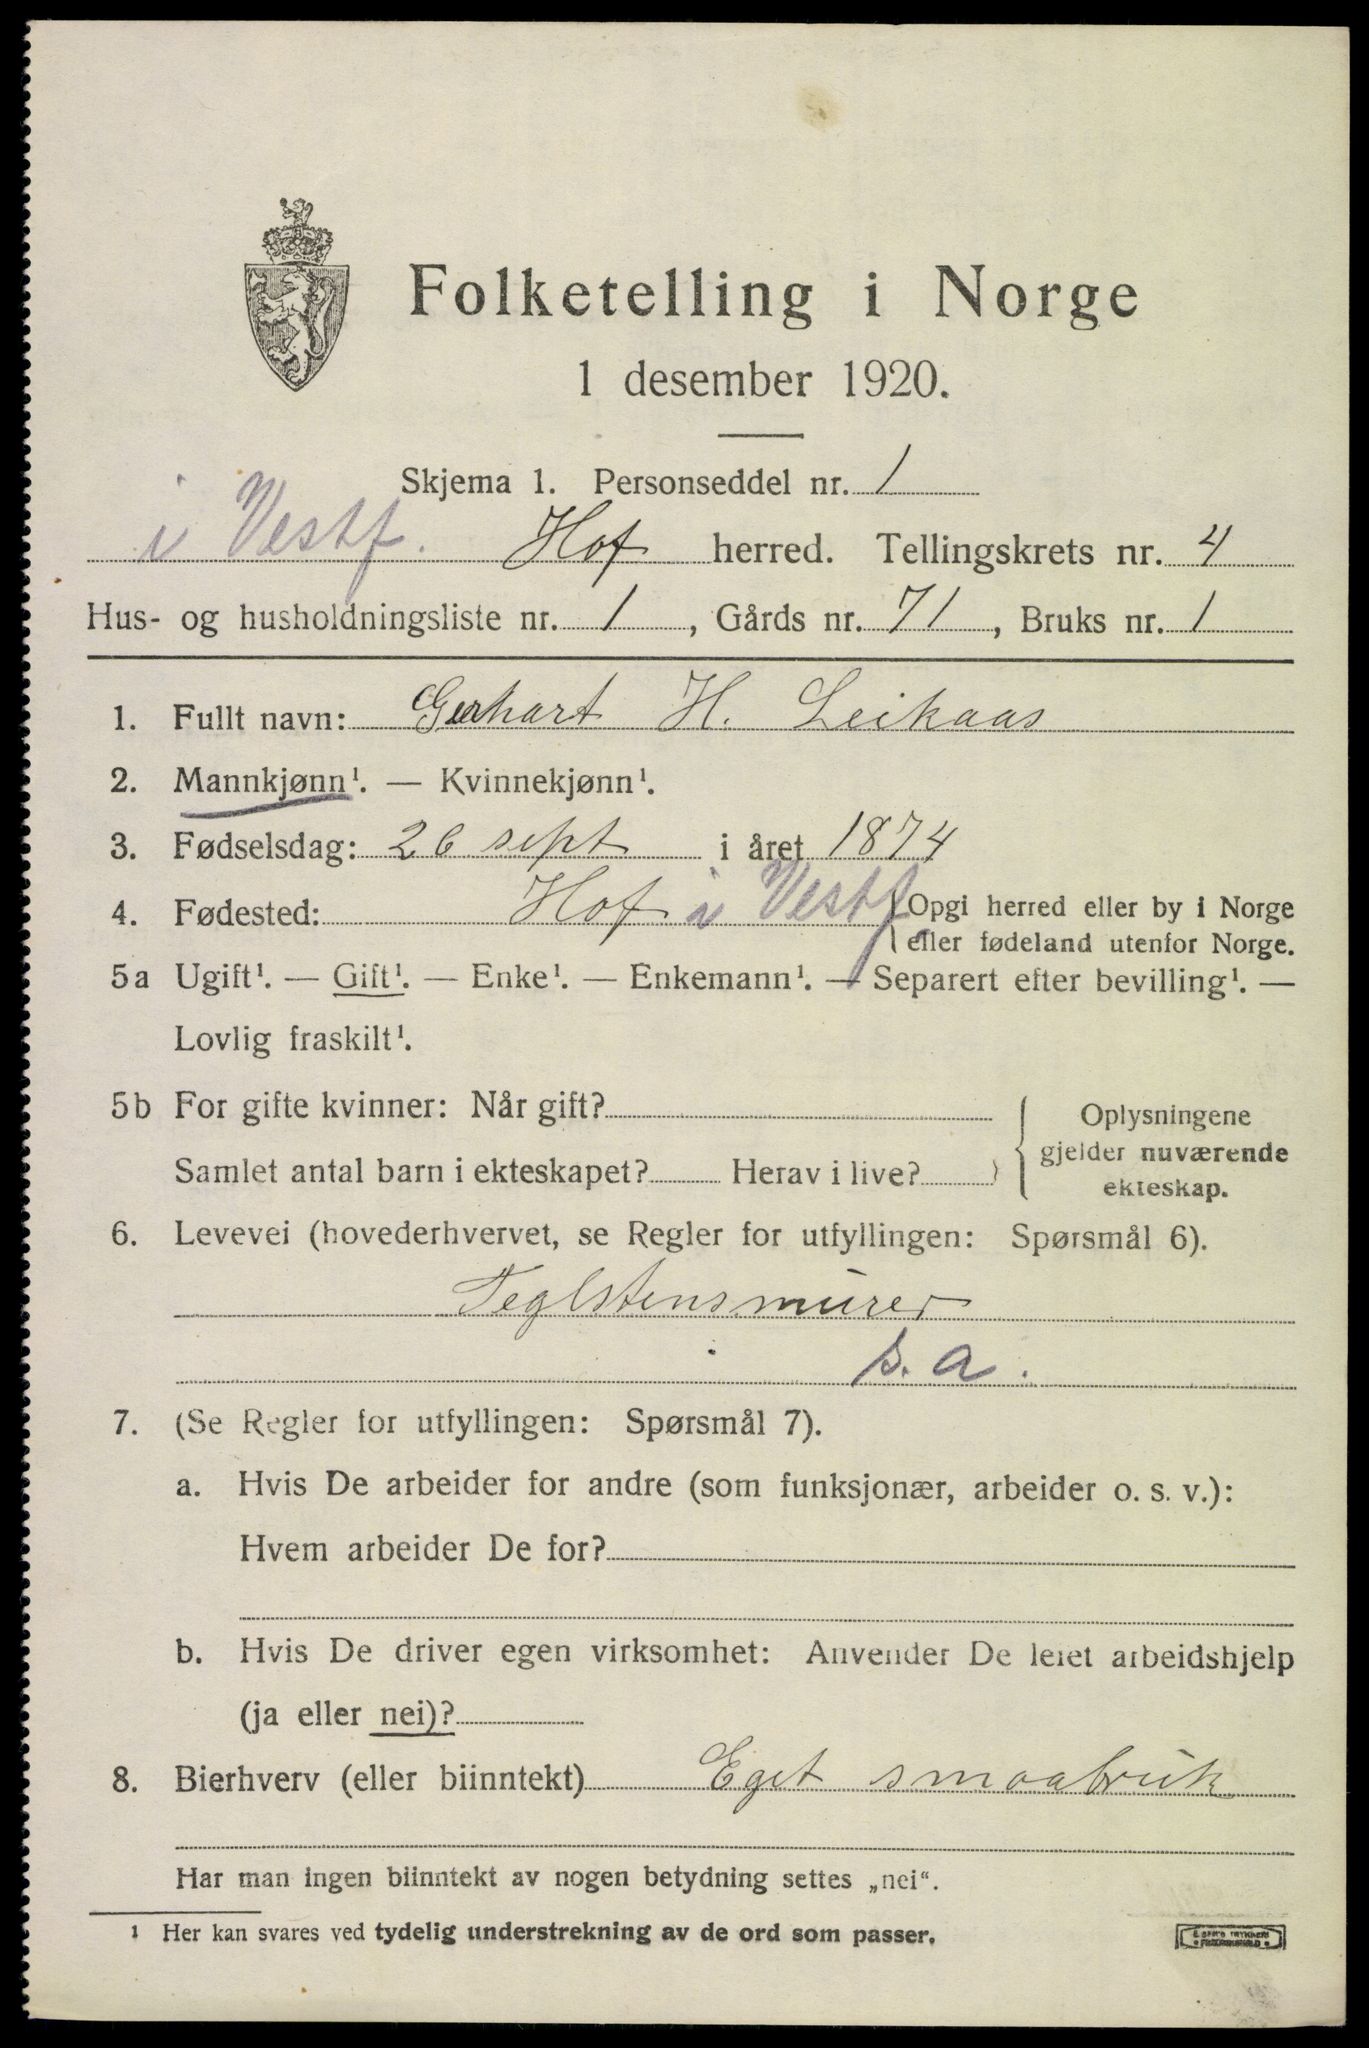 Folketelling i Norge
1 desember 1920.
Skjema 1. Personseddel nr. 1
i Vestf. Hof herred. Tellingskrets nr. 4
Hus- og husholdningsliste nr. 1, Gårds nr. 71, Bruks nr. 1
1. Fullt navn: Gerhart H. Leikaas
2. Mannkjønn¹. — Kvinnekjønn¹.
3. Fødselsdag: 26 sept i året 1874
4. Fødested: Hof i Vestf. {Opgi herred eller by i Norge
eller fødeland utenfor Norge.
5a Ugift¹. — Gift¹. — Enke¹. — Enkemann¹. — Separert efter bevilling¹. —
Lovlig fraskilt¹.
5b For gifte kvinner: Når gift?
Samlet antal barn i ekteskapet? Herav i live?
Oplysningene
gjelder nuværende
ekteskap.
6. Levevei (hovederhvervet, se Regler for utfyllingen: Spørsmål 6).
Teglstensmurer
s. a.
7. (Se Regler for utfyllingen: Spørsmål 7).
a. Hvis De arbeider for andre (som funksjonær, arbeider o. s. v.):
Hvem arbeider De for?
b. Hvis De driver egen virksomhet: Anvender De leiet arbeidshjelp
(ja eller nei)?
8. Bierhverv (eller biinntekt) Eget smaabruk
Har man ingen biinntekt av nogen betydning settes „nei“.
¹ Her kan svares ved tydelig understrekning av de ord som passer.